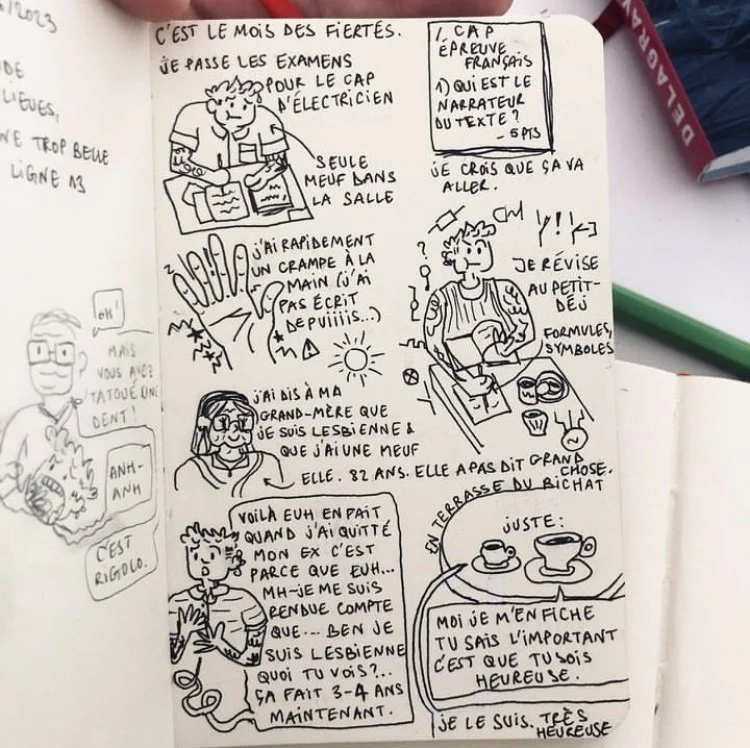 6/2023
UDE
LIEUES,
NE TROP BELLE
LIGNE 13
OH!
MAIS
VOUS AVEZ
TATOUÉ UNE
DENT!
ANH-
ANH
C'EST
RIGOLO.
C'EST LE MOIS DES FIERTÉS.
JE PASSE LES EXAMENS
POUR LE CAP
D'ÉLECTRICIEN
SEULE
MEUF DANS
LA SALLE
1. CAP
ÉPREUVE
FRANÇAIS
1) QUI EST LE
NARRATEUR
DU TEXTE?
- 5PTS
JE CROIS QUE ÇA VA
ALLER.
J'AI RAPIDEMENT
UN CRAMPE À LA
MAIN (J'AI
PAS ÉCRIT
DEPUIIIIS...)
JE RÉVISE
AU PETIT-
DÉJ
FORMULES,
SYMBOLES
J'AI DIS À MA
GRAND-MÈRE QUE
JE SUIS LESBIENNE &
QUE J'AI UNE MEUF
ELLE. 82 ANS. ELLE A PAS DIT GRAND
CHOSE.
VOILÀ EUH EN FAIT
QUAND J'AI QUITTÉ
MON EX C'EST
PARCE QUE EUH...
MH-JE ME SUIS
RENDUE COMPTE
QUE... BEN JE
SUIS LESBIENNE
QUOI TU VOIS?..
ÇA FAIT 3-4 ANS
MAINTENANT.
EN TERRASSE DU BICHAT
JUSTE:
MOI JE M'EN FICHE
TU SAIS L'IMPORTANT
C'EST QUE TU SOIS
HEUREUSE.
JE LE SUIS. TRÈS
HEUREUSE
DELAGRAV